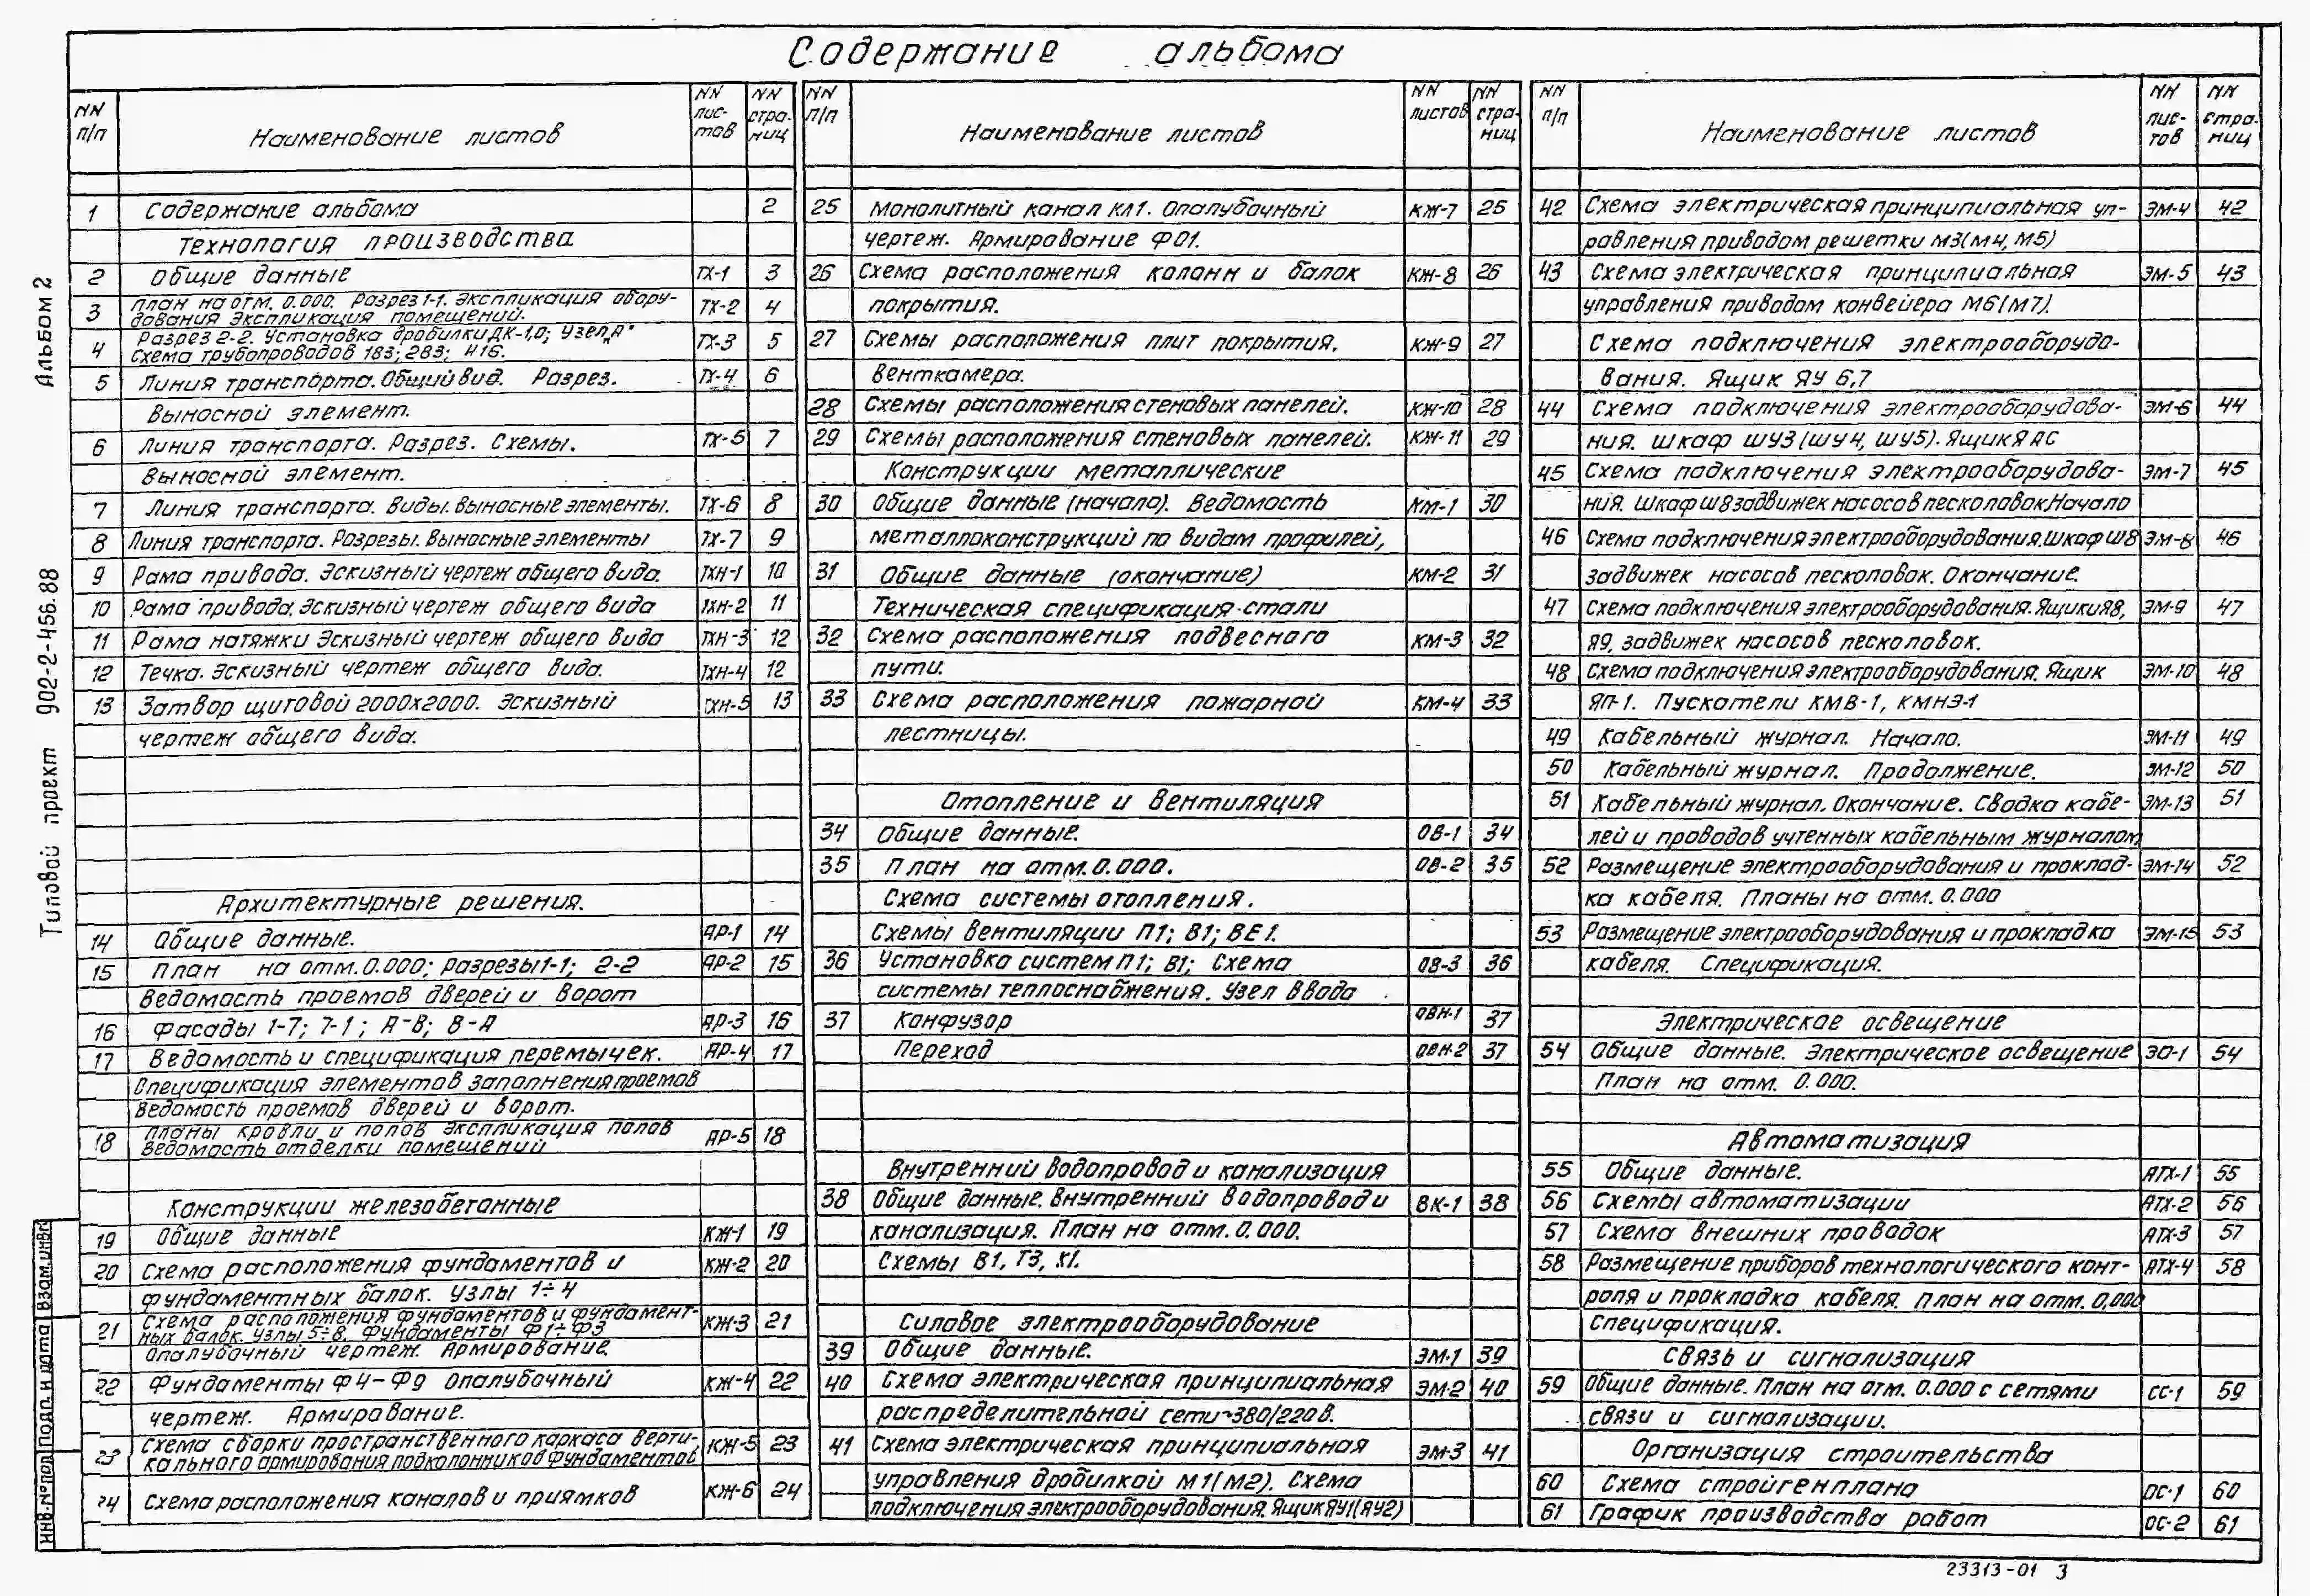 Содержание альбома
NN п/п Наименование листов NN лис- тов NN стра- ниц
1 Содержание альбома 2
Технология производства
2 Общие данные ТХ-1 3
3 План на отм. 0.000. Разрез 1-1. Экспликация обору-
дования Экспликация помещений. ТХ-2 4
4 Разрез 2-2. Установка дробилки ДК-1,0; Узел „А"
Схема трубопроводов 1В3; 2В3; Н16. ТХ-3 5
5 Линия транспорта. Общий вид. Разрез. ТХ-4 6
Выносной элемент.
6 Линия транспорта. Разрез. Схемы. ТХ-5 7
Выносной элемент.
7 Линия транспорта. Виды. Выносные элементы. ТХ-6 8
8 Линия транспорта. Разрезы. Выносные элементы ТХ-7 9
9 Рама привода. Эскизный чертеж общего вида. ТХН-1 10
10 Рама привода. Эскизный чертеж общего вида ТХН-2 11
11 Рама натяжки Эскизный чертеж общего вида ТХН-3 12
12 Течка. Эскизный чертеж общего вида. ТХН-4 12
13 Затвор щитовой 2000х2000. Эскизный ТХН-5 13
чертеж общего вида.
Архитектурные решения.
14 Общие данные. АР-1 14
15 План на отм. 0.000; Разрезы 1-1; 2-2 АР-2 15
Ведомость проемов дверей и ворот
16 Фасады 1-7; 7-1; А-В; В-А АР-3 16
17 Ведомость и спецификация перемычек. АР-4 17
Спецификация элементов заполнения проемов
Ведомость проемов дверей и ворот.
18 Планы кровли и полов Экспликация полов
Ведомость отделки помещений АР-5 18
Конструкции железобетонные
19 Общие данные КЖ-1 19
20 Схема расположения фундаментов и КЖ-2 20
фундаментных балок. Узлы 1÷4
21 Схема расположения фундаментов и фундамент-
ных балок. Узлы 5÷8. Фундаменты Ф1÷Ф3 КЖ-3 21
Опалубочный чертеж. Армирование.
22 Фундаменты Ф4-Ф9 Опалубочный КЖ-4 22
чертеж. Армирование.
23 Схема сборки пространственного каркаса верти-
кального армирования подколонников фундаментов КЖ-5 23
24 Схема расположения каналов и приямков КЖ-6 24
NN п/п Наименование листов NN листов NN стра- ниц
25 Монолитный канал КЛ1. Опалубочный КЖ-7 25
чертеж. Армирование Ф01.
26 Схема расположения колонн и балок КЖ-8 26
покрытия.
27 Схемы расположения плит покрытия, КЖ-9 27
венткамера.
28 Схемы расположения стеновых панелей. КЖ-10 28
29 Схемы расположения стеновых панелей. КЖ-11 29
Конструкции металлические
30 Общие данные (начало). Ведомость КМ-1 30
металлоконструкций по видам профилей,
31 Общие данные (окончание) КМ-2 31
Техническая спецификация стали
32 Схема расположения подвесного КМ-3 32
пути.
33 Схема расположения пожарной КМ-4 33
лестницы.
Отопление и вентиляция
34 Общие данные. ОВ-1 34
35 План на отм. 0.000. ОВ-2 35
Схема системы отопления.
Схемы вентиляции П1; В1; ВЕ1.
36 Установка систем П1; В1; Схема ОВ-3 36
системы теплоснабжения. Узел ввода
37 Конфузор ОВН-1 37
Переход ОВН-2 37
Внутренний водопровод и канализация
38 Общие данные. Внутренний водопровод и ВК-1 38
канализация. План на отм. 0.000.
Схемы В1, Т3, К1.
Силовое электрооборудование
39 Общие данные. ЭМ-1 39
40 Схема электрическая принципиальная ЭМ-2 40
распределительной сети ~380/220в.
41 Схема электрическая принципиальная ЭМ-3 41
управления дробилкой М1(М2). Схема
подключения электрооборудования. Ящик ЯУ1(ЯУ2)
NN п/п Наименование листов NN лис- тов NN стра- ниц
42 Схема электрическая принципиальная уп- ЭМ-4 42
равления приводом решетки М3(М4, М5)
43 Схема электрическая принципиальная ЭМ-5 43
управления приводом конвейера М6(М7).
Схема подключения электрооборудо-
вания. Ящик ЯУ 6,7
44 Схема подключения электрооборудова- ЭМ-6 44
ния. Шкаф ШУ3 (ШУ4, ШУ5). Ящик ЯАС
45 Схема подключения электрооборудова- ЭМ-7 45
ния. Шкаф Ш8 задвижек насосов песколовок Начало
46 Схема подключения электрооборудования. Шкаф Ш8 ЭМ-8 46
задвижек насосов песколовок. Окончание.
47 Схема подключения электрооборудования. Ящики Я8, ЭМ-9 47
Я9, задвижек насосов песколовок.
48 Схема подключения электрооборудования. Ящик ЭМ-10 48
ЯП-1. Пускатели КМВ-1, КМНЭ-1
49 Кабельный журнал. Начало. ЭМ-11 49
50 Кабельный журнал. Продолжение. ЭМ-12 50
51 Кабельный журнал. Окончание. Сводка кабе- ЭМ-13 51
лей и проводов учтенных кабельным журналом
52 Размещение электрооборудования и проклад- ЭМ-14 52
ка кабеля. Планы на отм. 0.000
53 Размещение электрооборудования и прокладка ЭМ-15 53
кабеля. Спецификация.
Электрическое освещение
54 Общие данные. Электрическое освещение ЭО-1 54
План на отм. 0.000.
Автоматизация
55 Общие данные. АТХ-1 55
56 Схемы автоматизации АТХ-2 56
57 Схема внешних проводок АТХ-3 57
58 Размещение приборов технологического конт- АТХ-4 58
роля и прокладка кабеля. План на отм. 0,000
Спецификация.
Связь и сигнализация
59 Общие данные. План на отм. 0.000 с сетями СС-1 59
связи и сигнализации.
Организация строительства
60 Схема стройгенплана ОС-1 60
61 График производства работ ОС-2 61
Типовой проект 902-2-456.88 Альбом 2
Инв.№подл. Подп. и дата Взам.инв№
23313-01 3